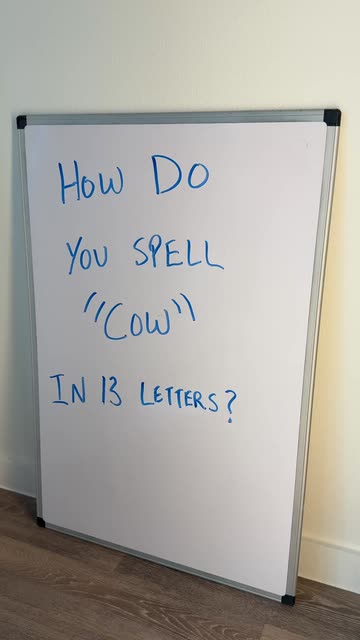 HOW DO
YOU SPELL
"COW"
IN 13 LETTERS?